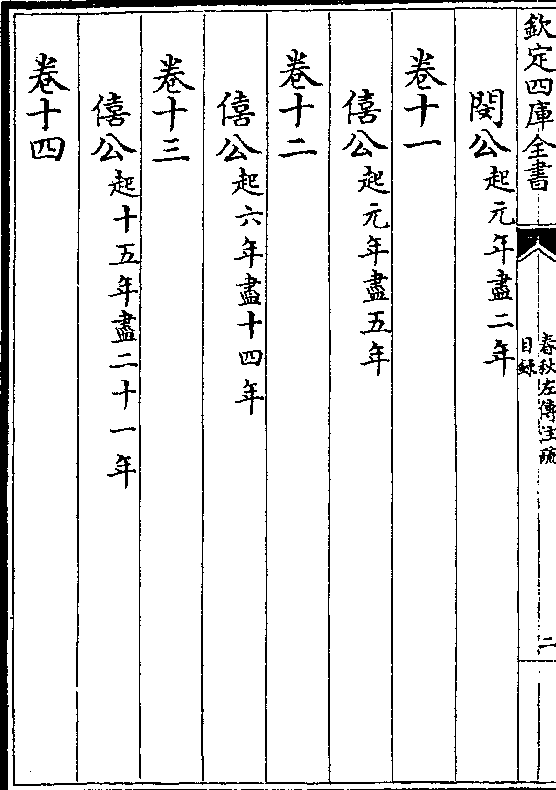 欽定四庫全書
春秋左傳注疏
目録
二
閔公起元年盡二年
卷十一
僖公起元年盡五年
卷十二
僖公起六年盡十四年
卷十三
僖公起十五年盡二十一年
卷十四